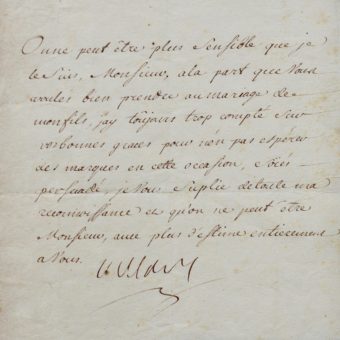 On ne peut être plus sensible que je
le suis, Monsieur, a la part que vous
voulés bien prendre au mariage de
mon fils, j'ay toujours trop compté sur
vos bonnes graces pour n'en pas espérer
des marques en cette occasion, soiés
persuadé, je vous suplie de toute ma
reconnoissance et qu'on ne peut être
Monsieur, avec plus d'estime entierement
a vous.